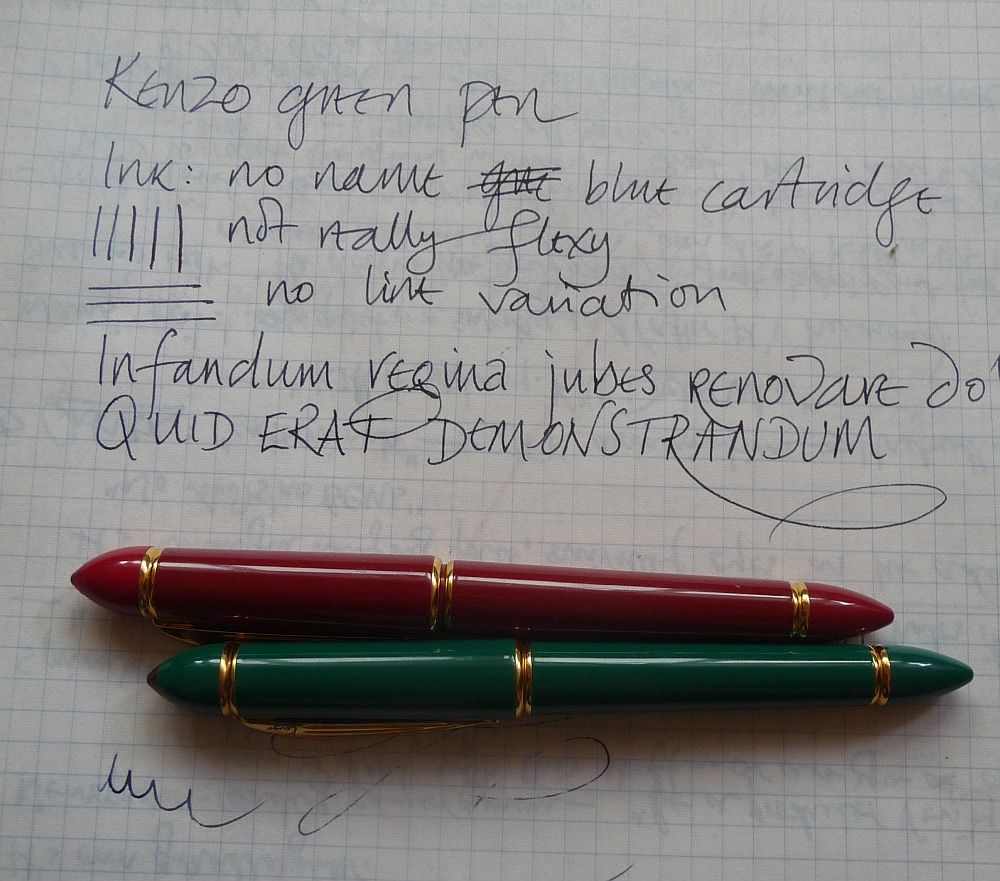 Kenzo green pen
Ink: no name blue cartridge
not really flexy
no line variation
Infandum regina jubes renovare do
QUID ERAT DEMONSTRANDUM